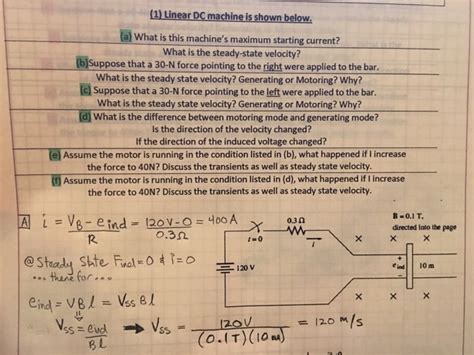 (1) Linear DC machine is shown below.
(a) What is this machine's maximum starting current?
What is the steady-state velocity?
(b) Suppose that a 30-N force pointing to the right were applied to the bar.
What is the steady state velocity? Generating or Motoring? Why?
(c) Suppose that a 30-N force pointing to the left were applied to the bar.
What is the steady state velocity? Generating or Motoring? Why?
(d) What is the difference between motoring mode and generating mode?
Is the direction of the velocity changed?
If the direction of the induced voltage changed?
(e) Assume the motor is running in the condition listed in (b), what happened if I increase
the force to 40N? Discuss the transients as well as steady state velocity.
(f) Assume the motor is running in the condition listed in (d), what happened if I increase
the force to 40N? Discuss the transients as well as steady state velocity.
A i = VB - eind / R = 120V-0 / 0.3Ω = 400A
@ Steady State Find = 0 & i = 0
... there for ...
eind = VBl = Vss Bl
Vss = eind / Bl → Vss = 120V / (0.1T)(10m) = 120 m/s
0.3 Ω
B = 0.1 T,
directed into the page
t=0
i
X X X
120 V
+
eind
-
10 m
X X X